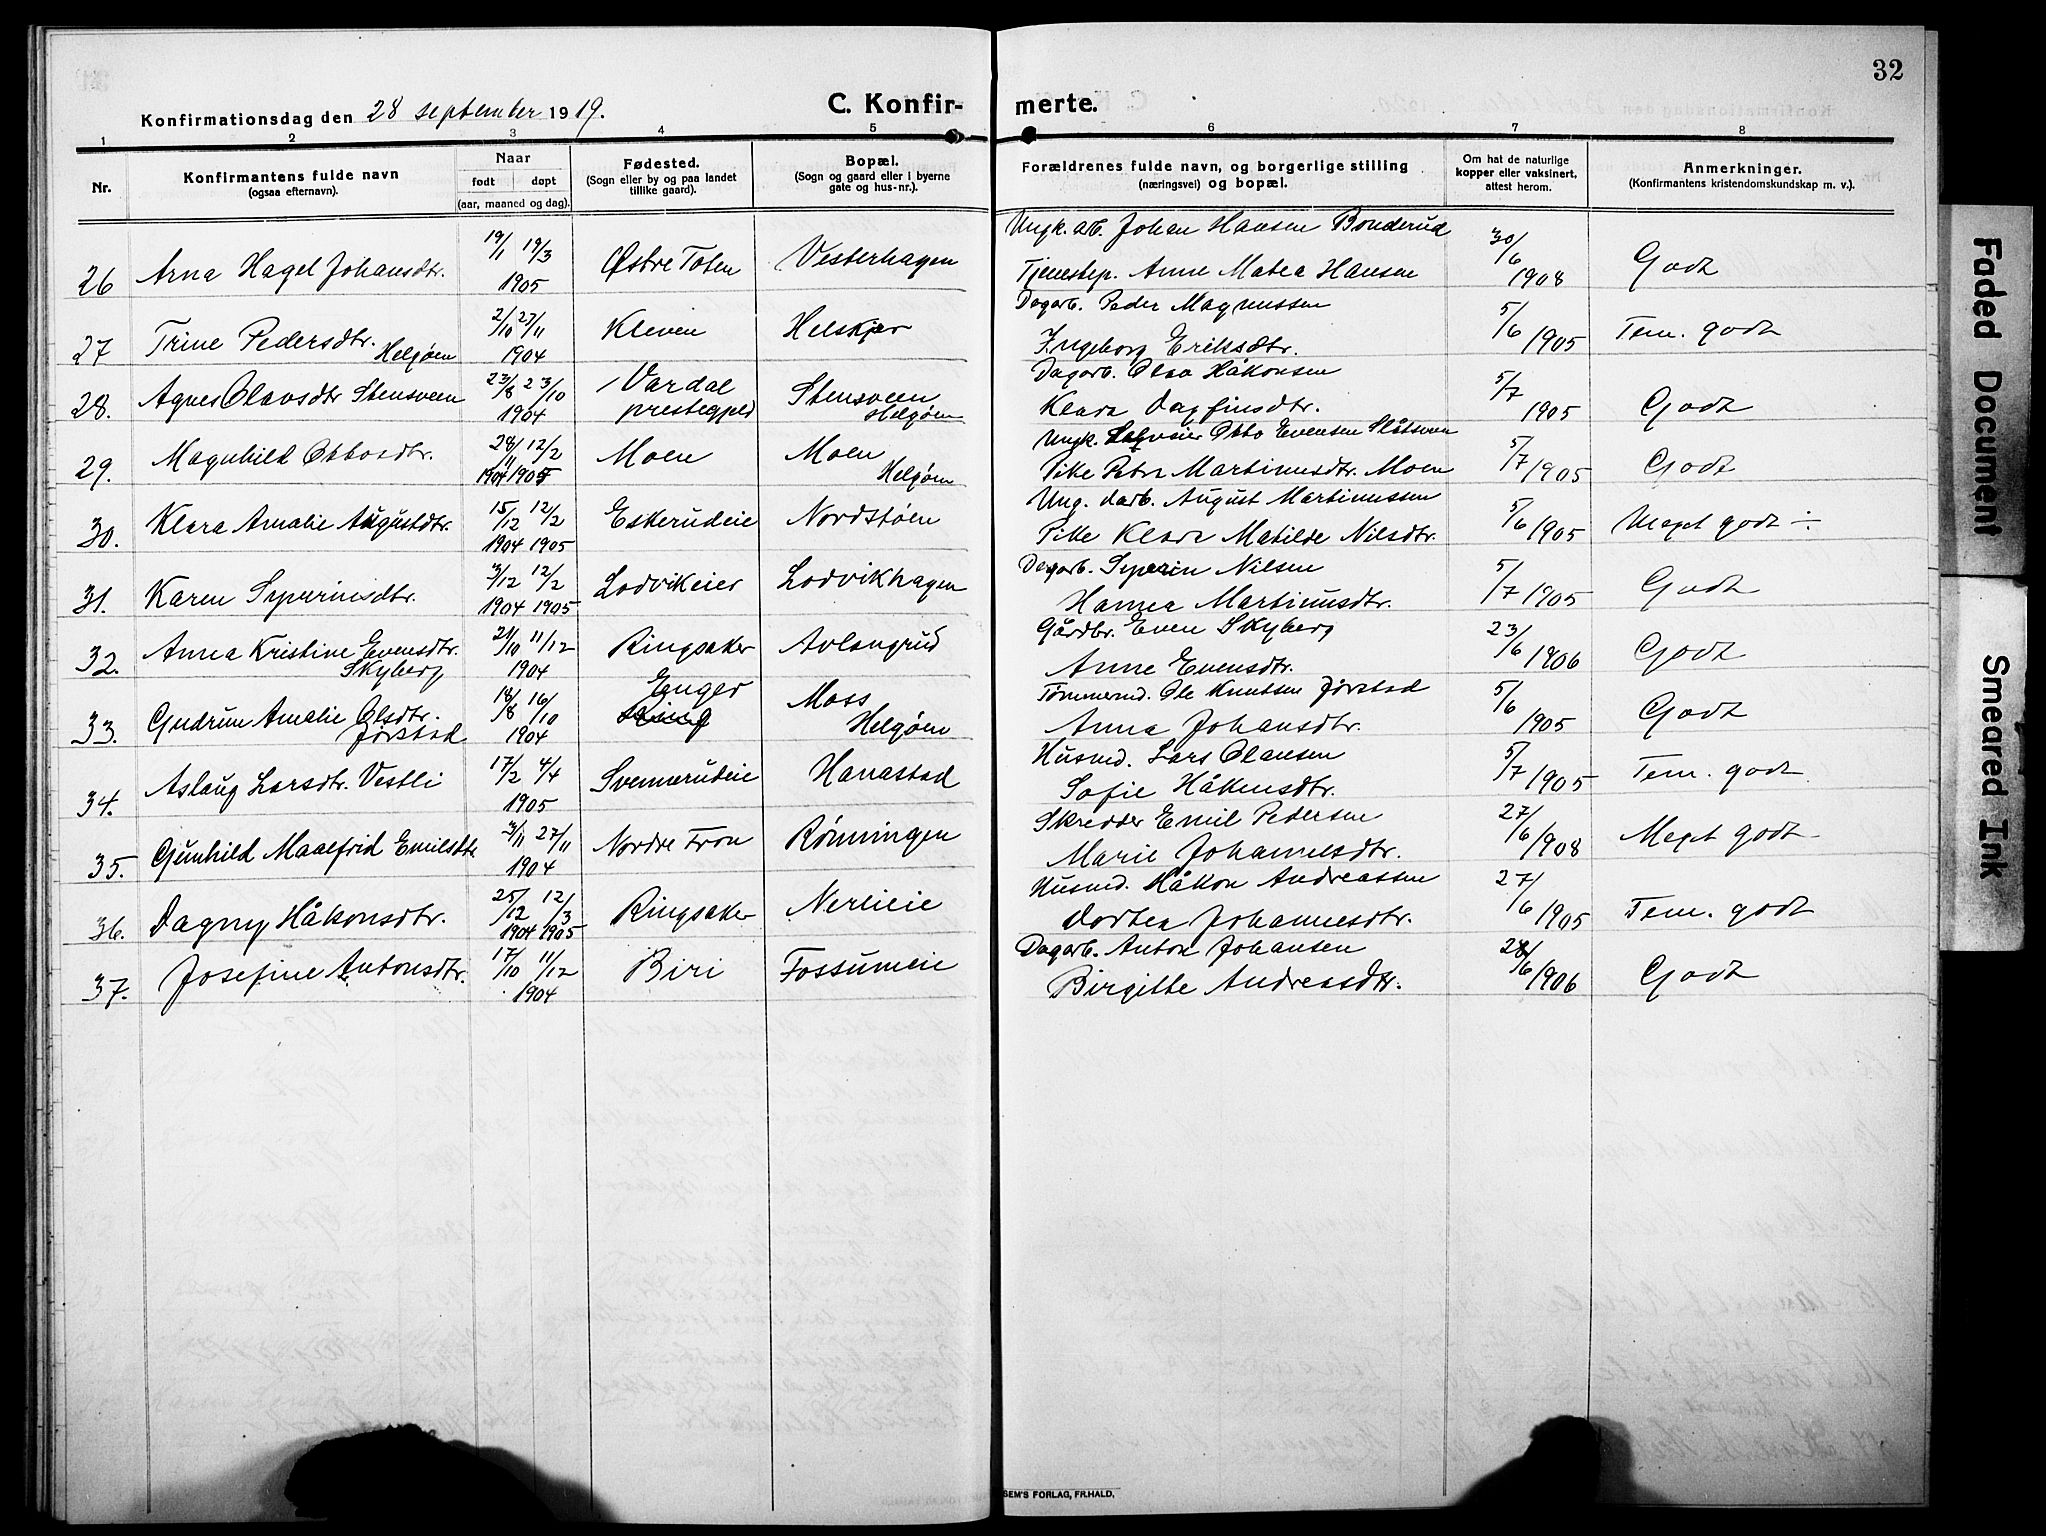 32
Konfirmationsdag den 28 september 1919. C. Konfir- merte.
1 2 3 4 5 6 7 8
Nr. Konfirmantens fulde navn (ogsaa efternavn). Naar født døpt (aar, maaned og dag). Fødested. (Sogn eller by og paa landet tillike gaard). Bopæl. (Sogn og gaard eller i byerne gate og hus-nr.). Forældrenes fulde navn, og borgerlige stilling (næringsvei) og bopæl. Om hat de naturlige kopper eller vaksinert, attest herom. Anmerkninger. (Konfirmantens kristendomskundskap m. v.).
Ungk. arb. Johan Hansen Bonderud
26 Arna Hagel Johansdtr. 19/1 19/3 1905 Østre Toten Vesterhagen Tjenestep. Anne Matea Hansen 30/6 1908 Godt
Dagarb. Peder Magnussen
27 Trine Pedersdtr. Helgøen 2/10 27/11 1904 Kleven Helskjer Ingeborg Eriksdtr. 5/6 1905 Tem. godt
Dagarb. Olav Håkonsen
28. Agnes Olavsdtr Stensveen 23/8 23/10 1904 Vardal prestegjeld Stensveen Helgøen Klara Dagfinsdtr. 5/7 1905 Godt
Ungk. Otto Evensen Slåtsveen
29. Magnhild Ottosdtr. 28/11 12/2 1904 1905 Moen Moen Helgøen Pike Petra Martinusdtr. Moen 5/7 1905 Godt
Ung. darb. August Martinussen
30. Klara Amalie Augustdtr. 15/12 12/2 1904 1905 Eskerudeie Nordstøen Pike Klara Matilde Nilsdtr. 5/6 1905 Meget godt ÷
Dagarb. Syverin Nilsen
31. Karen Syverinsdtr. 3/12 12/2 1904 1905 Lodvikeier Lodvikhagen Hanna Martinusdtr. 5/7 1905 Godt
Gårdbr. Even Skyberg
32. Anna Kristine Evensdtr. Skyberg 21/10 11/12 1904 Ringsaker Avlangrud Anne Evensdtr. 23/6 1906 Godt
Tømmermd. Ole Knutsen Jørstad
33. Gudrun Amalie Olsdtr. Jørstad 18/8 16/10 1904 Enger Moss Helgøen Anna Johansdtr. 5/6 1905 Godt
Husmd. Lars Olausen
34. Aslaug Larsdtr. Vestli 17/2 4/4 1905 Svennerudeie Hanastad Sofie Håkensdtr. 5/7 1905 Tem. godt
Skredder Emil Pedersen
35. Gunhild Maalfrid Emilsdtr. 3/11 27/11 1904 Nordre Fron Rønningen Marie Johannesdtr. 27/6 1908 Meget godt
Husmd. Håkon Andreassen
36. Dagny Håkonsdtr. 25/12 12/3 1904 1905 Ringsaker Nereieie Dortea Johannesdtr. 27/6 1905 Tem. godt
Dagarb. Anton Johansen
37. Josefine Antonsdtr. 17/10 11/12 1904 Biri Fossumeie Birgitte Andreasdtr. 28/6 1906 Godt
SEM'S FORLAG, FR.HALD.
Faded Document
Smeared Ink